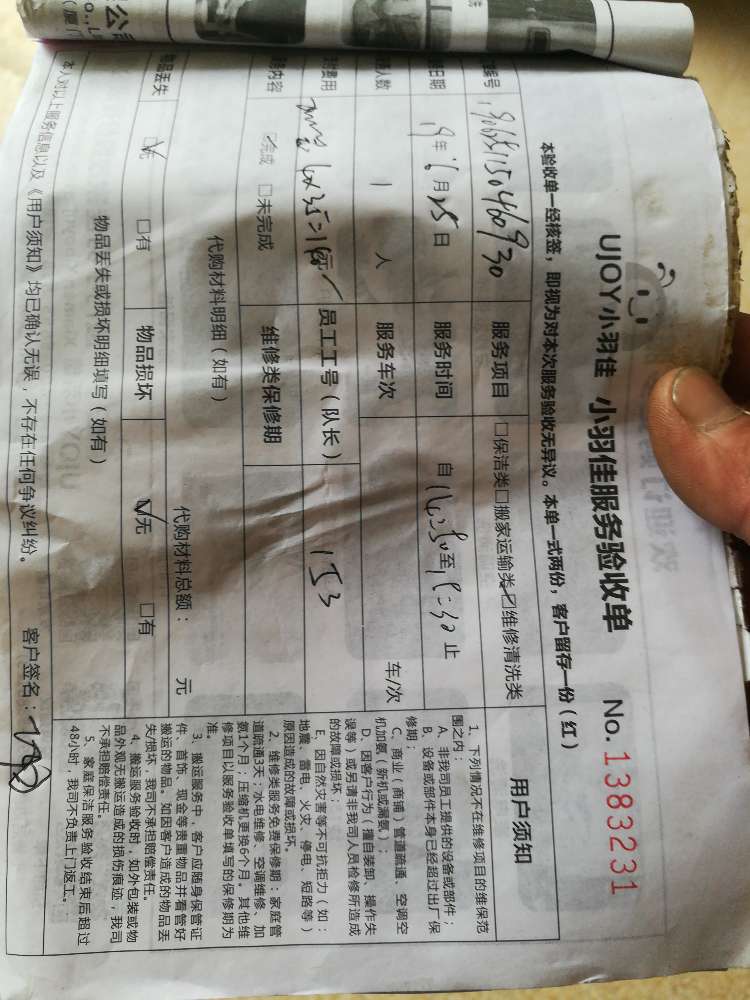 UJOY小羽佳 小羽佳服务验收单 No. 1383231
本验收单一经核签，即视为对本次服务验收无异议。本单一式两份，客户留存一份（红）
服务项目 □保洁类□搬家运输类☑维修清洗类
日期 19年 月25日 服务时间 自 至 止
人数 1 人 服务车次 车/次
费用 员工工号（队长） 153
内容 ☑完成 □未完成 维修类保修期
代购材料明细（如有） 代购材料总额： 元
丢失 ☑无 □有 物品损坏 ☑无 □有
物品丢失或损坏明细填写（如有）
本人对以上服务信息以及《用户须知》均已确认无误，不存在任何争议纠纷。 客户签名：
用户须知
1、下列情况不在维修项目的维保范
围之内：
A、非我司员工提供的设备或部件；
B、设备或部件本身已经超过出厂保
修期；
C、商业（商铺）管道疏通、空调空
机加氨（新机或漏氨）；
D、因客户行为（擅自装卸、操作失
误等）或另请非我司人员检修所造成
的故障或损坏；
E、因自然灾害等不可抗拒力（如：
地震、雷电、火灾、停电、短路等）
原因造成的故障或损坏。
2、维修类服务免费保修期：家庭管
道疏通3天；水电维修、空调维修、加
氨1个月；压缩机更换6个月。其他维
修项目以服务验收单填写的保修期为
准。
3、搬运服务中，客户应随身保管证
件、首饰、现金等贵重物品并看管好
搬运的物品。如因客户造成的物品丢
失/损坏，我司不承担赔偿责任。
4、搬运服务验收时，如外包装或物
品外观无搬运造成的损伤痕迹，我司
不承担赔偿责任。
5、家庭保洁服务验收结束后超过
48小时，我司不负责上门返工。